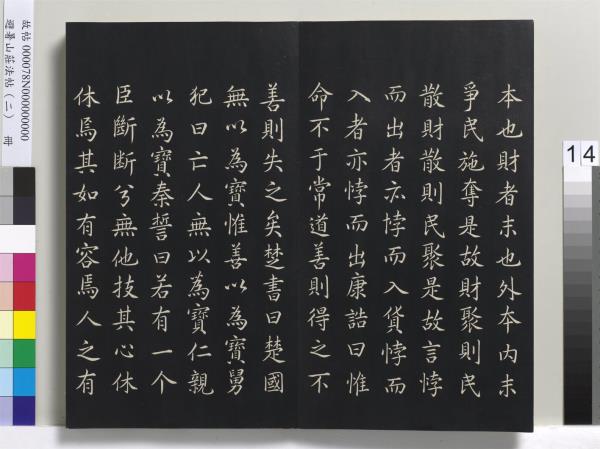 本也財者末也外本內末
爭民施奪是故財聚則民
散財散則民聚是故言悖
而出者亦悖而入貨悖而
入者亦悖而出康誥曰惟
命不于常道善則得之不
善則失之矣楚書曰楚國
無以為寶惟善以為寶舅
犯曰亡人無以為寶仁親
以為寶秦誓曰若有一个
臣斷斷兮無他技其心休
休焉其如有容焉人之有
故帖 000078N000000000
避暑山莊法帖（二） 冊
14